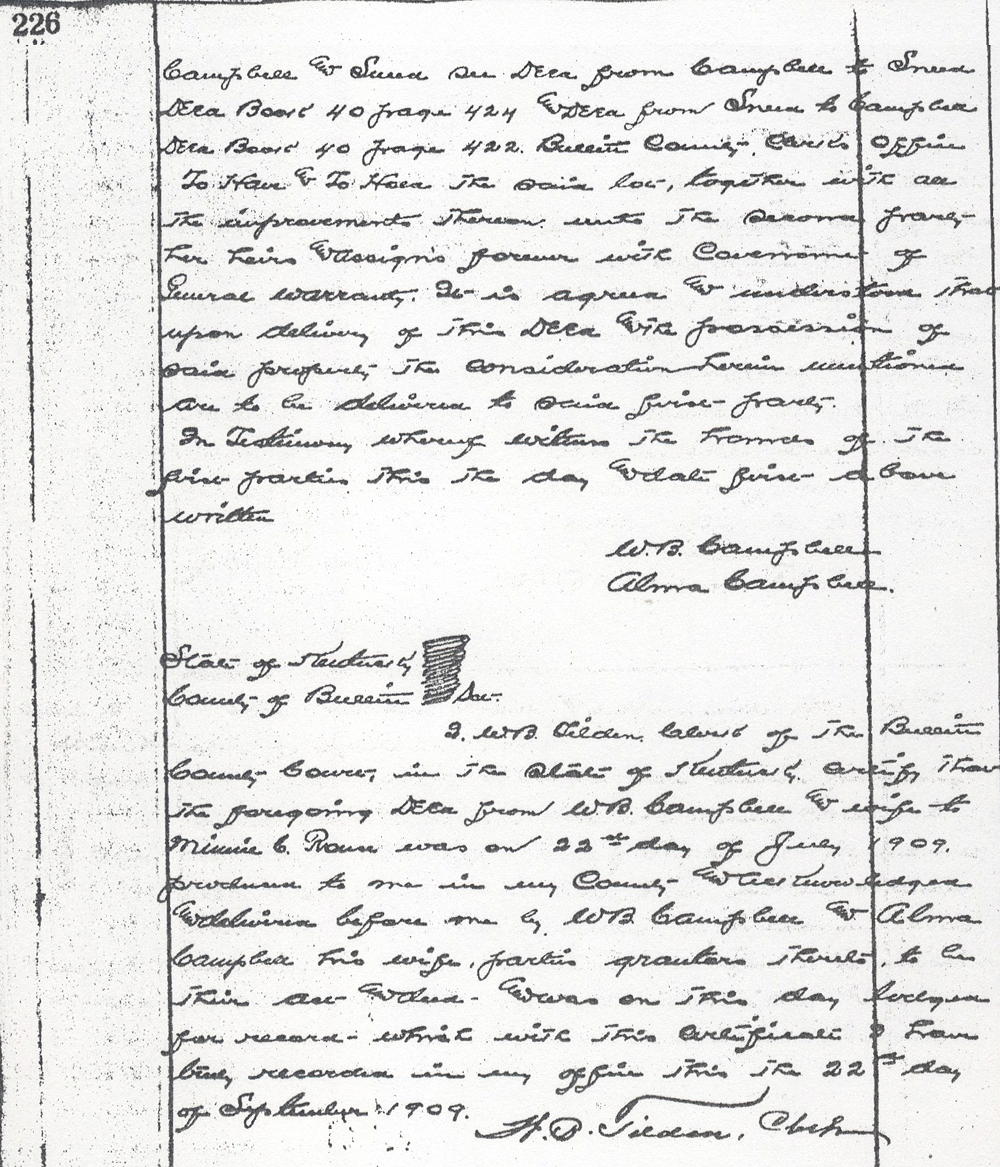 226
Campbell & Sneed see Deed from Campbell to Sneed
Deed Book 40 page 424 & Deed from Sneed to Campbell
Deed Book 40 page 422. Bullitt County Clerks Office
To Have & To Hold the said lot, together with all
the improvements thereon unto the second party
her heirs & assigns forever with Covenant of
General warranty. It is agreed & understood that
upon delivery of this Deed & the possession of
said property the consideration herein mentioned
are to be delivered to said first party.
In Testimony whereof witness the hands of the
first parties this the day & date first above
written
W.B. Campbell
Alma Campbell.
State of Kentucky
County of Bullitt Sct.
I, W.B. Tilden, Clerk of the Bullitt
County Court, in the State of Kentucky, certify that
the foregoing Deed from W.B. Campbell & wife to
Minnie C. Rouse was on 22nd day of July 1909.
produced to me in my County & acknowledged
& delivered before me by W.B. Campbell & Alma
Campbell his wife, parties grantors thereto, to be
their act & deed - & was on this day lodged
for record - which with this certificate I have
duly recorded in my office this the 22nd day
of September 1909.
W.B. Tilden, Clerk